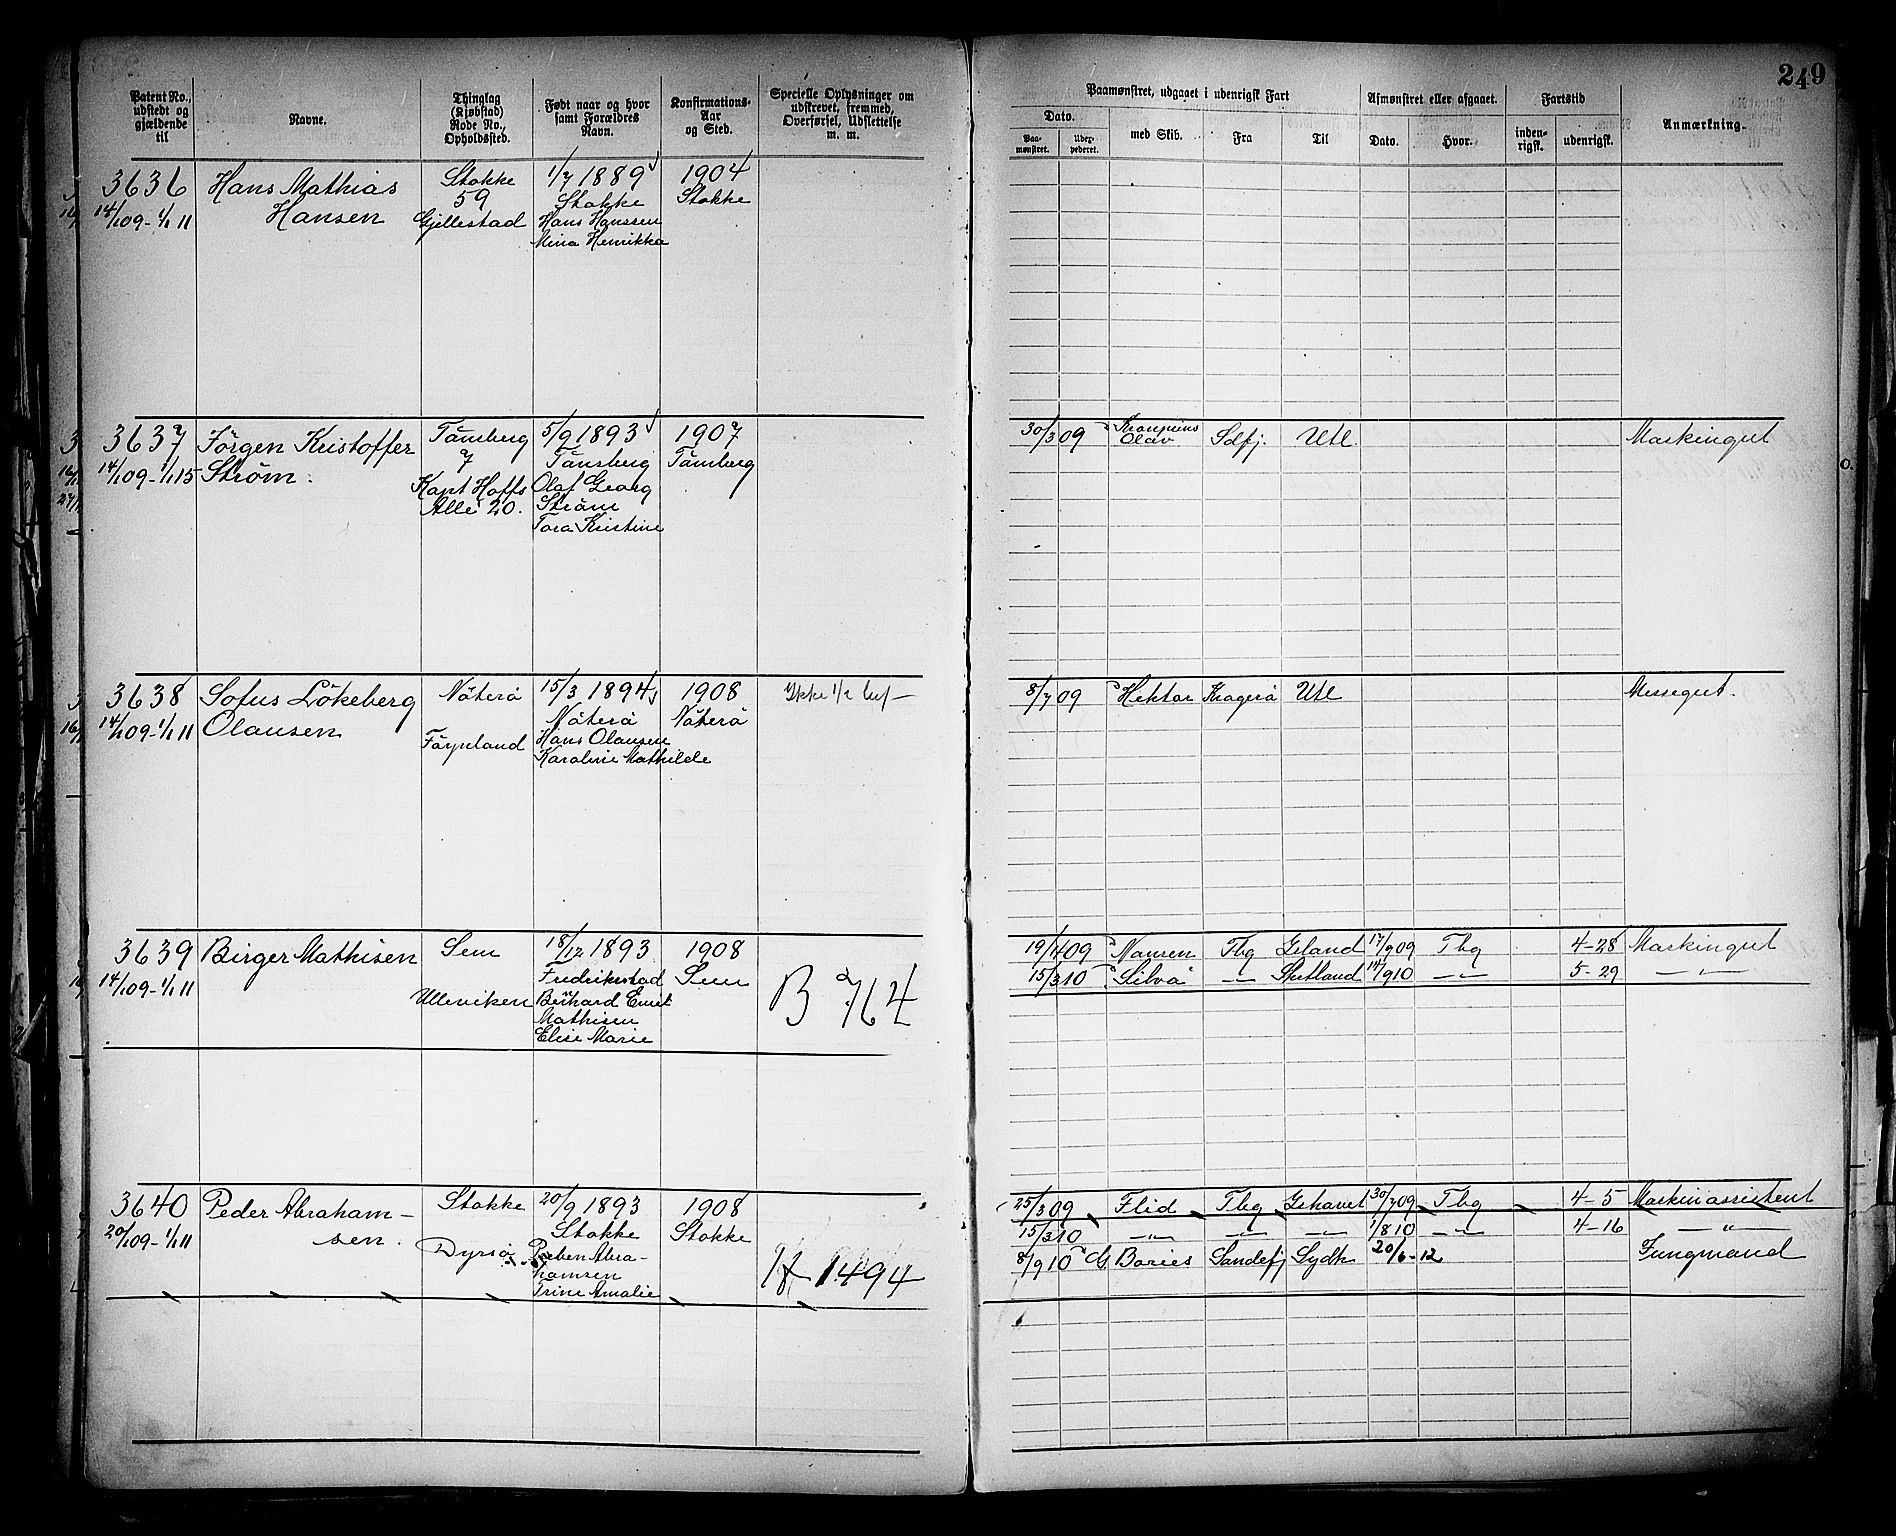 249
Patent No., udstedt og gjældende til
Navne.
Thinglag (Kjøbstad) Rode No., Opholdssted.
Født naar og hvor samt Forældres Navn.
Konfirmations-Aar og Sted.
Specielle Oplysninger om udskrevet, fremmed, Overførsel, Udslettelse m. m.
Paamønstret, udgaaet i udenrigsk Fart
Dato.
Paa-mønstret.
med Skib.
Fra
Til
Afmønstret eller afgaaet.
Dato.
Hvor.
Fartstid
inden-rigsk.
udenrigsk.
Anmærkning.
3636 Hans Mathias Stokke 1/7 1889 1904
14/1 09-1/1 11 Hansen 59 Stokke Stokke
Gjellestad Hans Hanssen
Mina Henrikka
3637 Jörgen Kristoffer Tönsberg 5/9 1893 1907 30/3 09 Olav Sdfj. Utl. Maskingut
14/1 09-1/1 15 Ström. 7 Tönsberg Tönsberg
Kapt Hoffs Olaf Georg
Alle 20. Ström
Tora Kristine
3638 Sofus Lökeberg Nöterö 15/3 1894 1908 8/7 09 Hektor Kragerö Utl Messegut.
14/1 09-1/1 11 Olausen Nöterö Nöterö
Föynland Hans Olausen
Karoline Mathilde
3639 Birger Mathisen Sem 18/12 1893 1908 19/4 09 Nansen Tbg Island 17/9 09 Tbg 4-28 Maskingut
14/1 09-1/1 11 Fredrikstad Sem 15/3 10 Silva -"- Shetland 14/9 10 -"- 5-29 -"-
Ulleviken Berhard Emil B 764
Mathisen
Elise Marie
3640 Peder Abraham- Stokke 20/9 1893 1908 25/3 09 Flid Tbg Ishavet 30/7 09 Tbg 4-5 Maskinassistent
20/1 09-1/1 11 sen. Stokke Stokke 15/3 10 -"- -"- -"- 1/8 10 -"- 4-16 -"-
Dyrsö Preben Abra- 8/9 10 Bories Sandefj Sydh 20/6-12 Jungmand
hamsen 1494
Trine Amalie